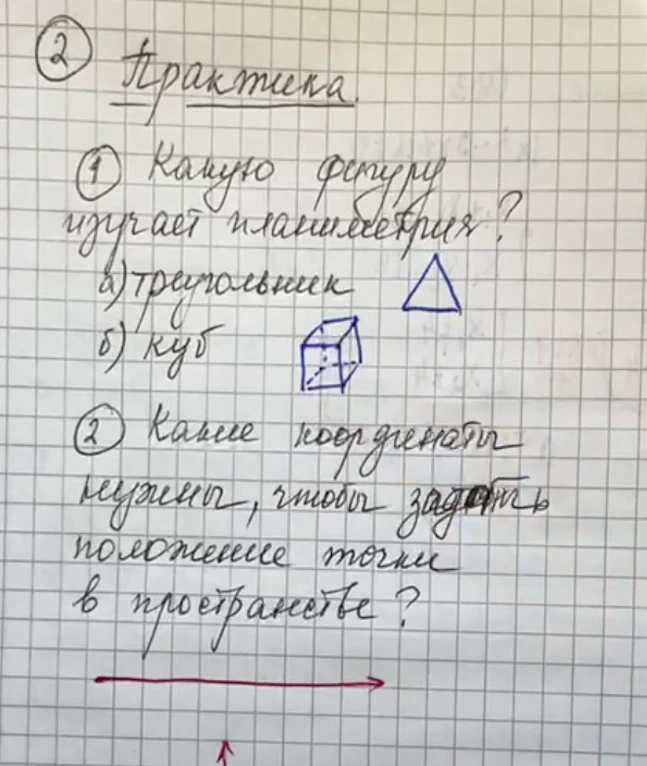 ② Практика.
① Какую фигуру
изучает планиметрия?
а) треугольник
б) куб
② Какие координаты
нужны, чтобы задать
положение точки
в пространстве?